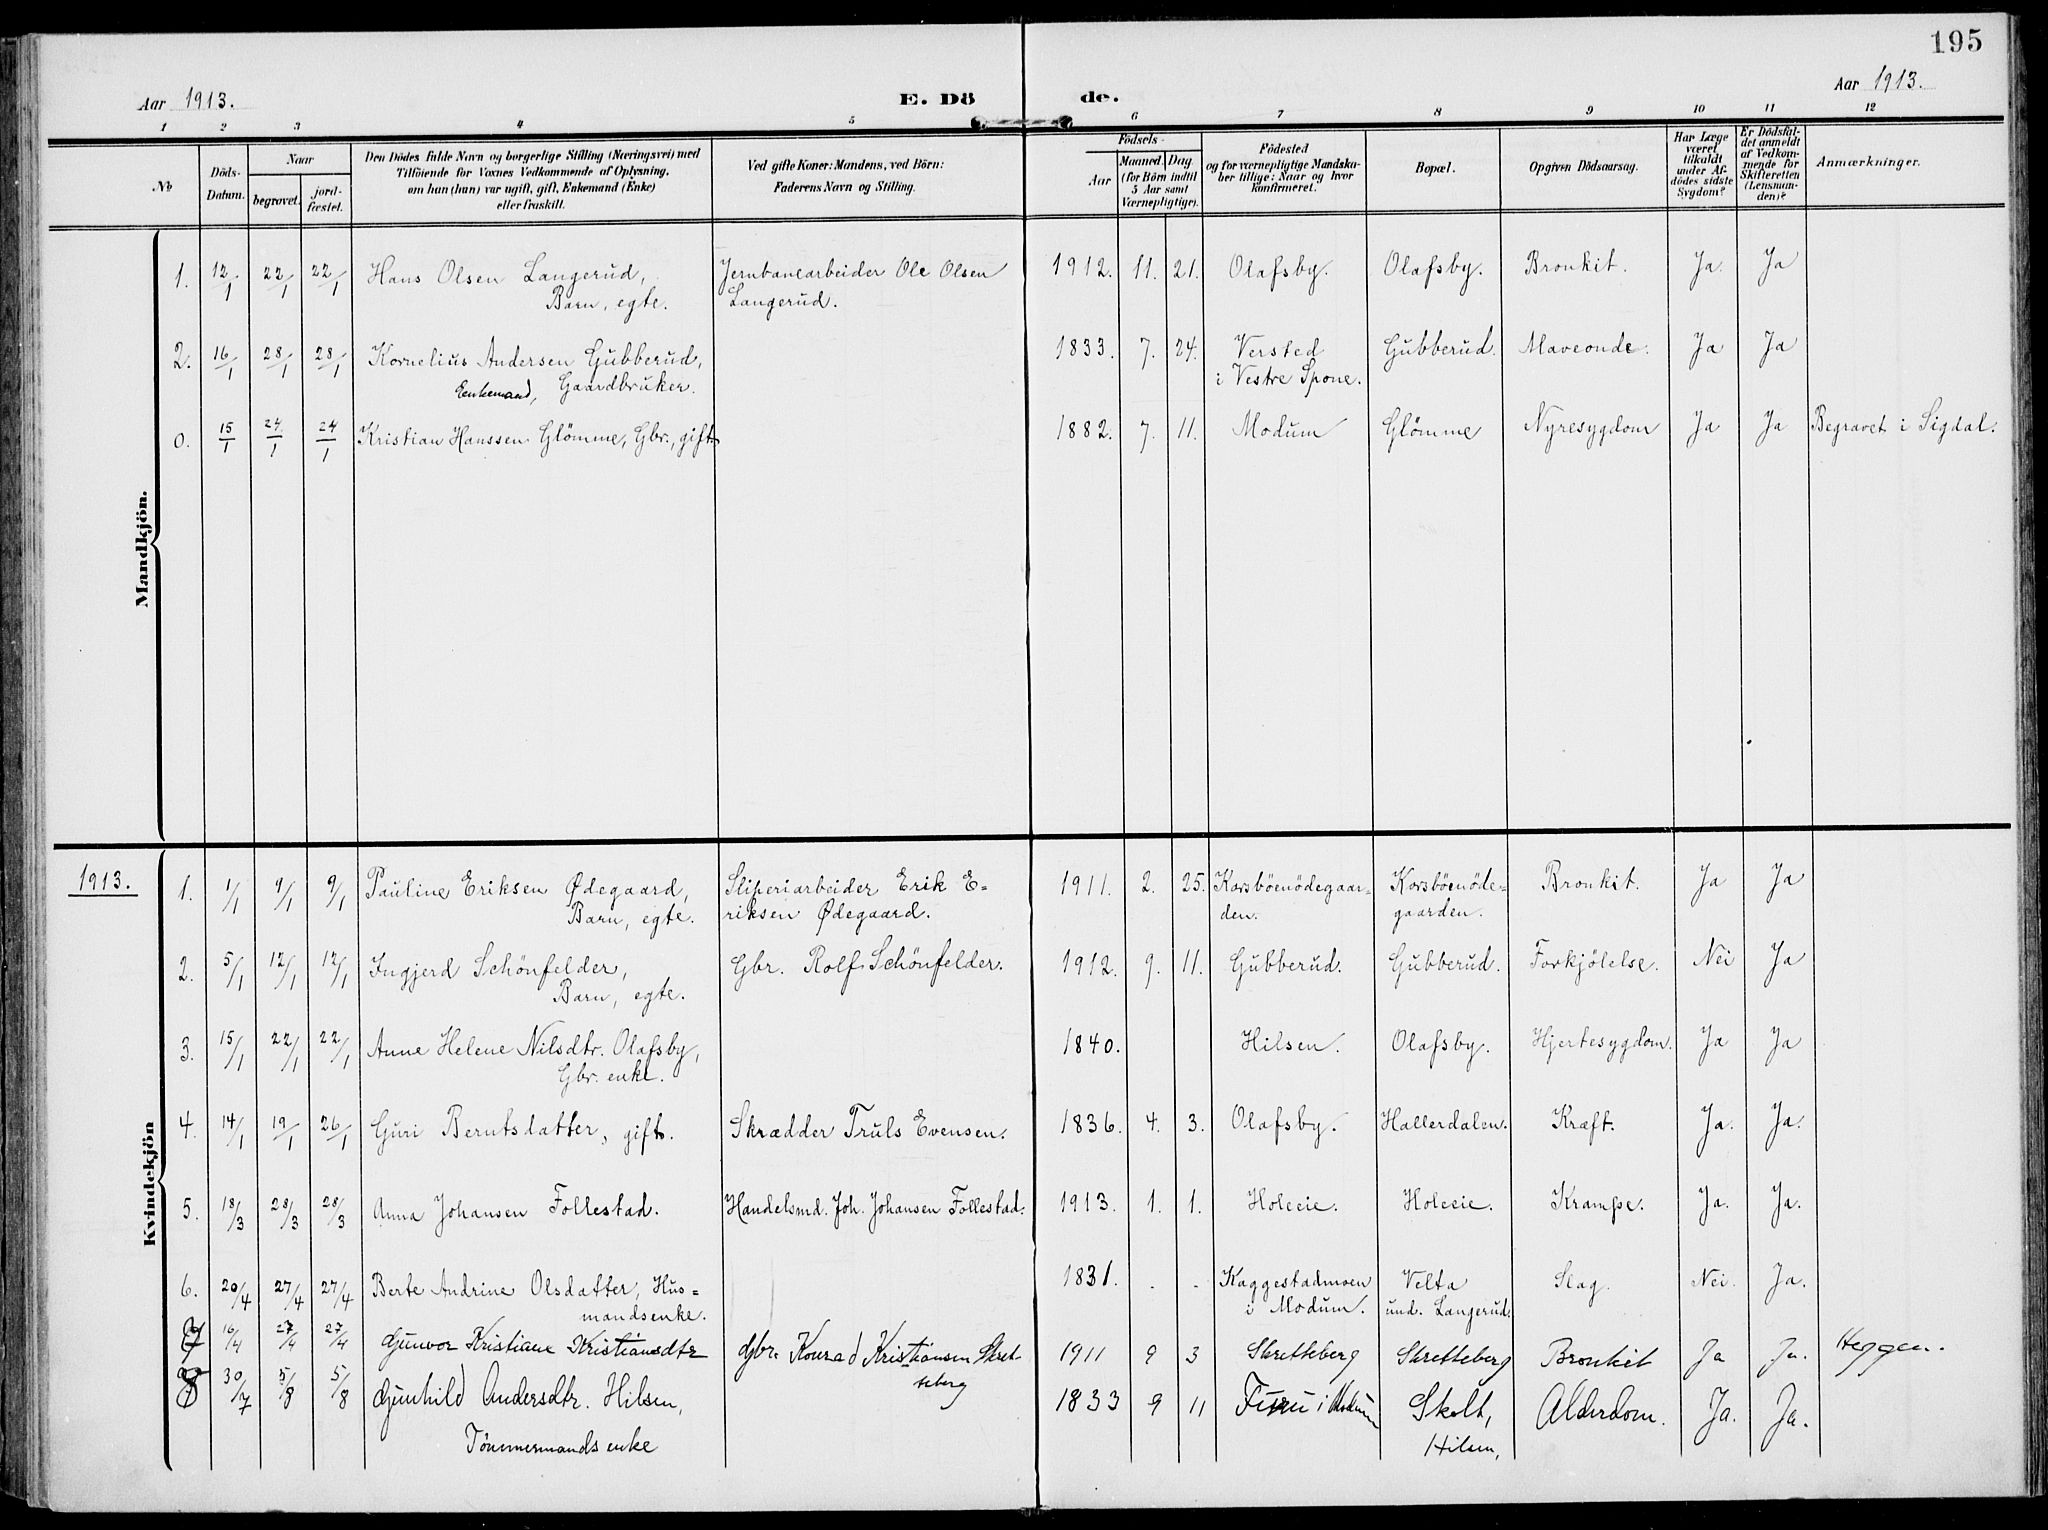 195
Aar 1913.
E. Dö
de.
Aar 1913.
1 2 3 4 5 6 7 8 9 10 11 12
No
Döds-Datum.
Naar
begravet.
jord-fæstet.
Den Dödes fulde Navn og borgerlige Stilling (Næringsvei) med
Tilföiende for Voxnes Vedkommende af Oplysning,
om han (hun) var ugift, gift, Enkemand (Enke)
eller fraskilt.
Ved gifte Koner: Mandens, ved Börn:
Faderens Navn og Stilling.
Födsels-
Aar
Maaned. Dag.
(for Börn indtil
5 Aar samt
Værnepligtige).
Födested
og for værnepligtige Mandska-
ber tillige: Naar og hvor
konfirmeret.
Bopæl.
Opgiven Dödsaarsag.
Har Læge
været
tilkaldt
under Af-
dödes sidste
Sygdom?
Er Dödsfal-
det anmeldt
af Vedkom-
mende for
Skifteretten
(Lensman-
den)?
Anmærkninger.
Mandkjön.
1. 12/1 22/1 22/1 Hans Olsen Langerud, Jernbanearbeider Ole Olsen 1912. 11. 21. Olafsby. Olafsby. Bronkit. Ja. Ja
Barn, egte. Langerud.
2. 16/1 28/1 28/1 Kornelius Andersen Gubberud, 1833. 7. 24. Versted Gubberud. Maveonde. Ja Ja
Enkemand, Gaardbruker. i Vestre Spone.
0. 15/1 24/1 24/1 Kristian Hanssen Glömme, Gbr., gift 1882. 7. 11. Modum Glömme Nyresygdom Ja Ja Begravet i Sigdal.
1913.
Kvindekjön
1. 1/1 9/1 9/1 Pauline Eriksen Ødegaard, Sliperiarbeider Erik E= 1911. 2. 25. Korsböenödegaar- Korsböenöde= Bronkit. Ja Ja
Barn, egte. riksen Ødegaard. den. gaarden.
2. 5/1 12/1 12/1 Ingjerd Schönfelder, Gbr. Rolf Schönfelder. 1912. 9. 11. Gubberud. Gubberud. Forkjölelse. Nei Ja
Barn, egte.
3. 15/1 22/1 22/1 Anne Helene Nilsdtr. Olafsby, 1840. Hilsen. Olafsby. Hjertesygdom. Ja Ja
Gbr. enke.
4. 14/1 19/1 26/1 Guri Berntsdatter, gift. Skrædder Truls Evensen. 1836. 4. 3. Olafsby. Hallerdalen. Kræft. Ja. Ja.
5. 18/3 28/3 28/3 Anna Johansen Follestad. Handelsmd. Joh. Johansen Follestad. 1913. 1. 1. Holeeie. Holeeie. Krampe. Ja. Ja.
6. 20/4 27/4 27/4 Berte Andrine Olsdatter, Hus= 1831. - - Kaggestadmoen Velta Slag. Nei. Ja.
mandsenke. i Modum. und. Langerud.
7 16/4 27/4 27/4 Gunvor Kristiane Kristiansdtr Gbr. Konrad Kristiansen Skret- 1911 9 3 Skretteberg Skretteberg Bronkit Ja Ja. Heggen.
teberg
8 30/7 5/8 5/8 Gunhild Andersdtr. Hilsen, 1833 9 11 Furu i Modum Skolt, Alderdom. Ja. Ja.
Tömmermands enke Hilsen,